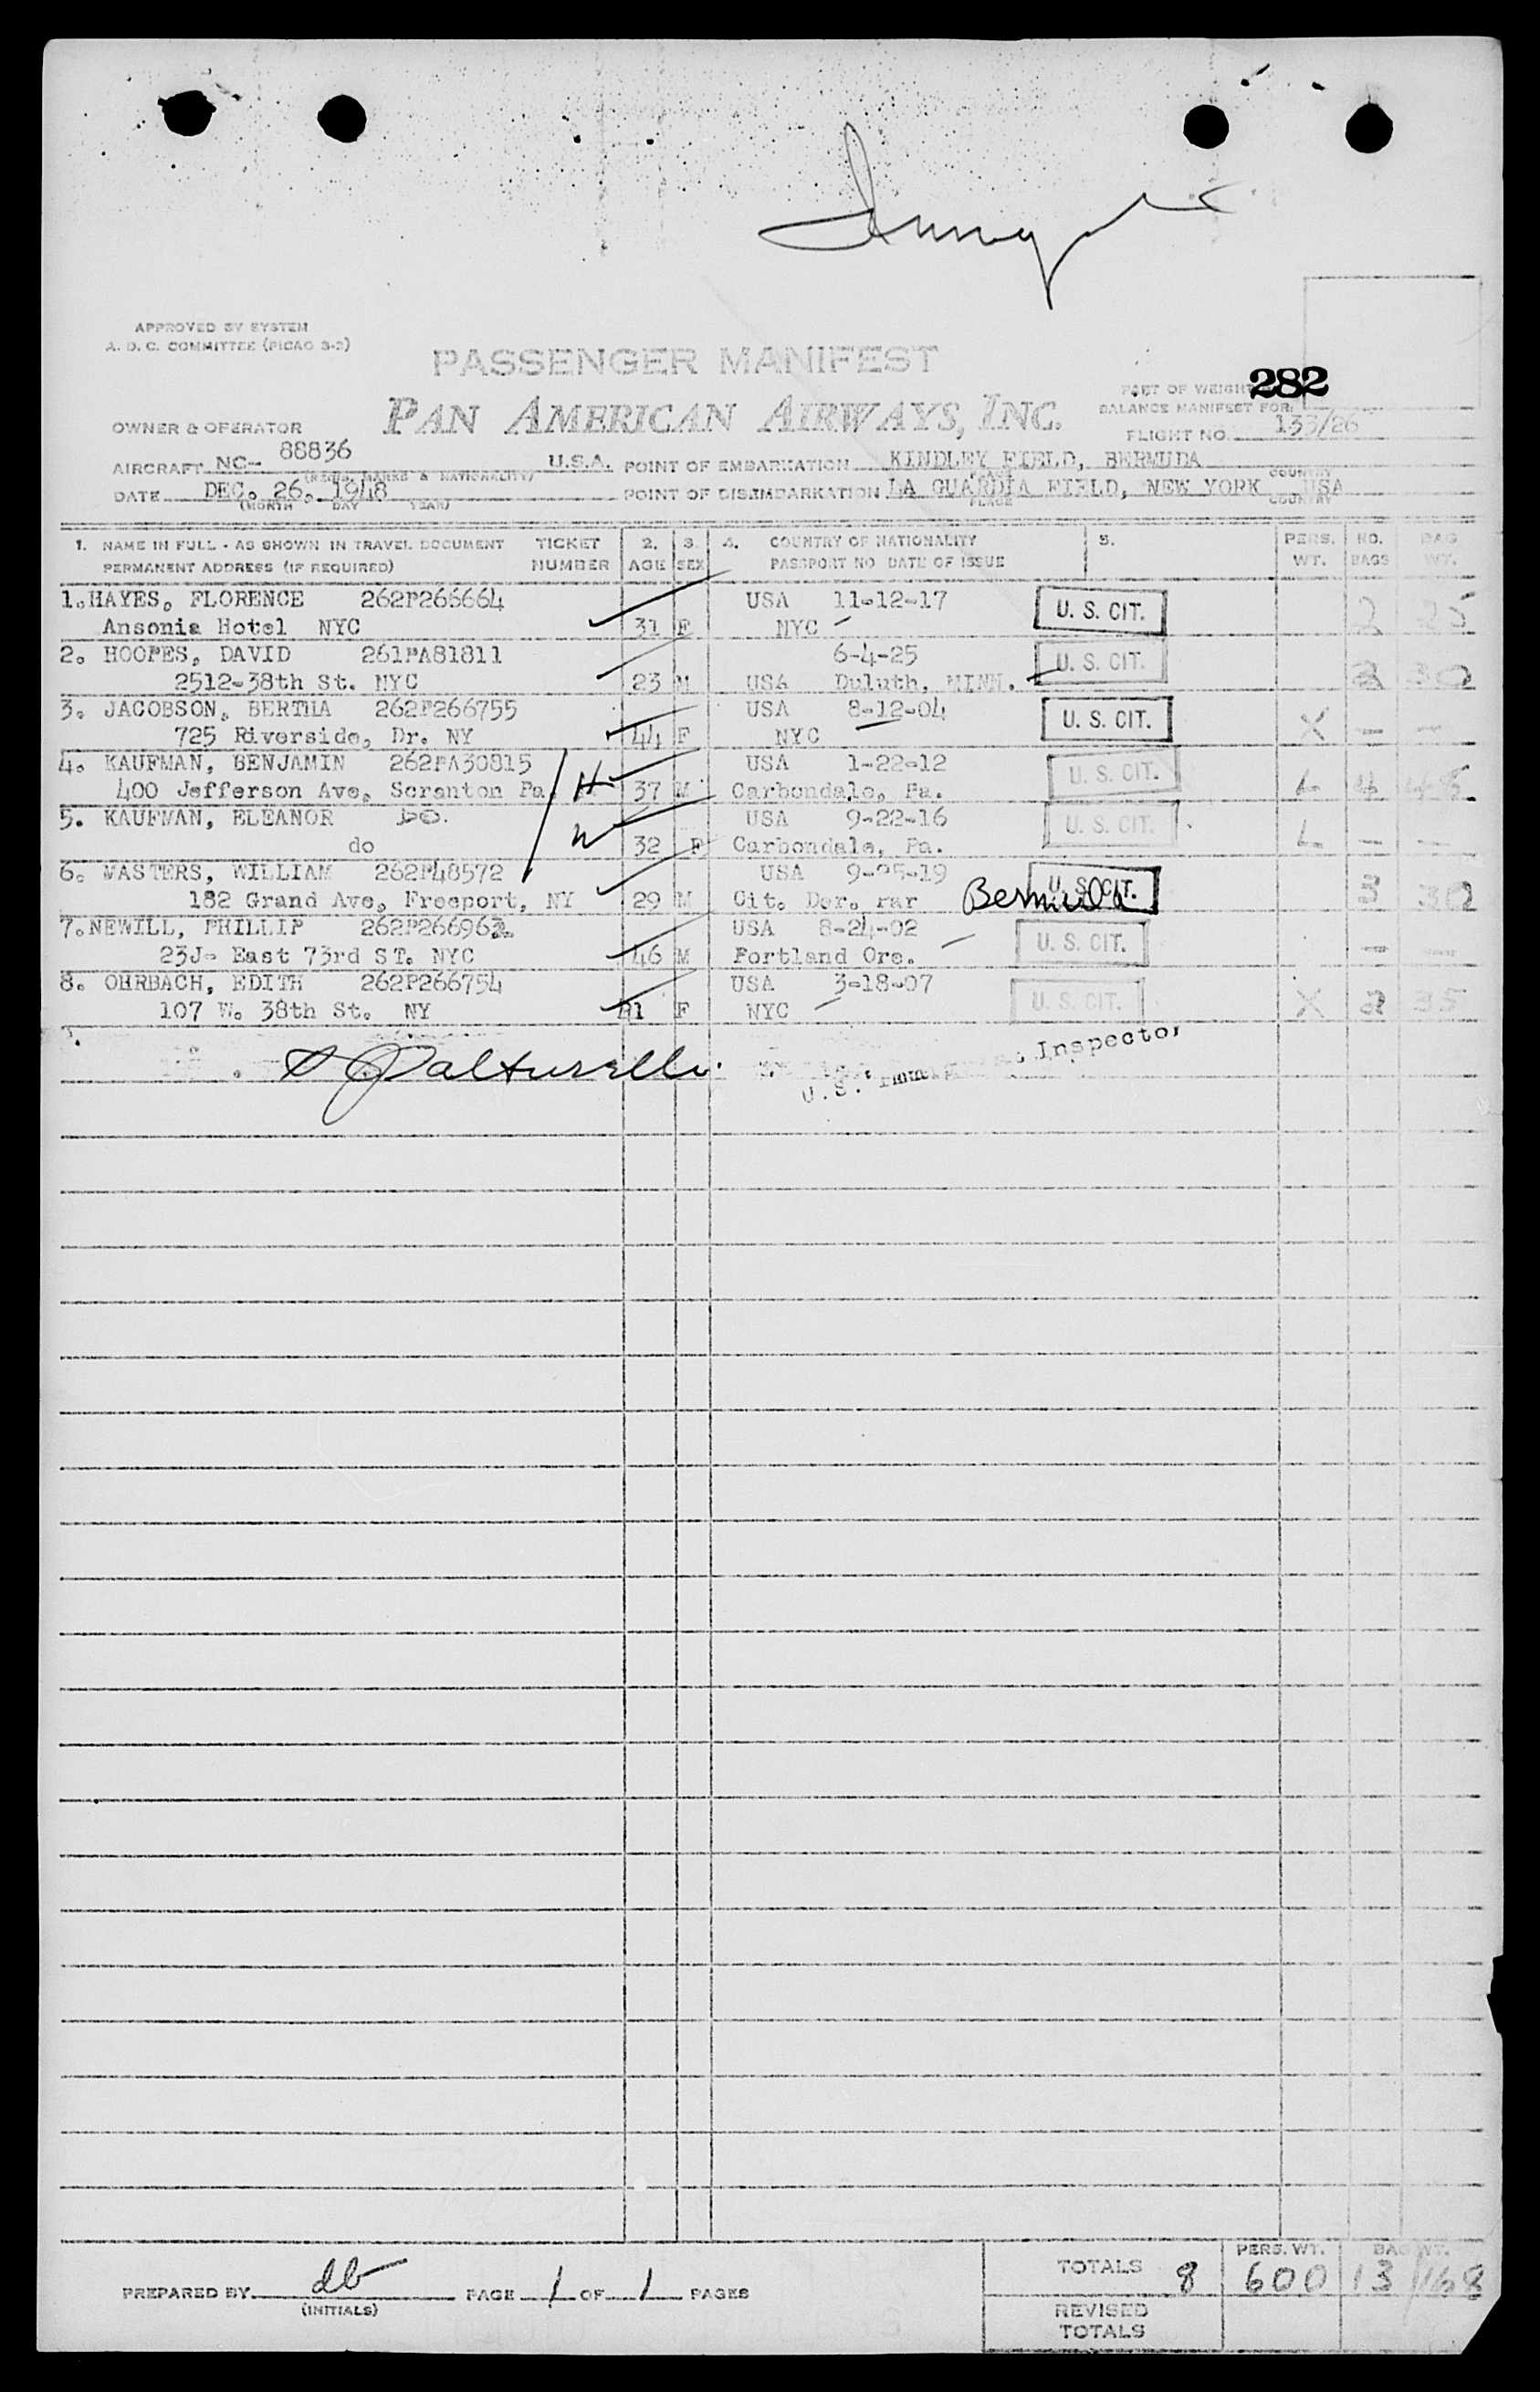 APPROVED BY SYSTEM
A. D. C. COMMITTEE (PICAO 3-2)
PASSENGER MANIFEST
PAN AMERICAN AIRWAYS, INC.
282
PART OF WEIGHT
BALANCE MANIFEST FOR:
FLIGHT NO. 133/26
OWNER & OPERATOR
AIRCRAFT NC- 88836 U.S.A. POINT OF EMBARKATION KINDLEY FIELD, BERMUDA
(REGIS. MARKS & NATIONALITY) PLACE COUNTRY
DATE DEC. 26. 1948 POINT OF DISEMBARKATION LA GUARDIA FIELD, NEW YORK USA
(MONTH DAY YEAR) PLACE COUNTRY
1. NAME IN FULL - AS SHOWN IN TRAVEL DOCUMENT TICKET 2. 3. 4. COUNTRY OF NATIONALITY 5. PERS. NO. BAG
PERMANENT ADDRESS (IF REQUIRED) NUMBER AGE SEX PASSPORT NO DATE OF ISSUE WT. BAGS WT.
1. HAYES, FLORENCE 262P266664 USA 11-12-17 U. S. CIT.
Ansonia Hotel NYC 31 F NYC 2 25
2. HOOPES, DAVID 261PA81811 6-4-25 U. S. CIT.
2512-38th St. NYC 23 M USA Duluth, MINN. 2 30
3. JACOBSON, BERTHA 262P266755 USA 8-12-04 U. S. CIT.
725 Riverside, Dr. NY 44 F NYC X - -
4. KAUFMAN, BENJAMIN 262PA30815 USA 1-22-12 U. S. CIT.
400 Jefferson Ave, Scranton Pa. H 37 M Carbondale, Pa. L 4 48
5. KAUFMAN, ELEANOR DO. USA 9-22-16 U. S. CIT.
do W 32 F Carbondale, Pa. L - -
6. MASTERS, WILLIAM 262P48572 USA 9-25-19 U. S. CIT.
182 Grand Ave, Freeport, NY 29 M Cit. Der. par Bermuda 3 30
7. NEWILL, PHILLIP 262P266962 USA 8-24-02 U. S. CIT.
23J- East 73rd ST. NYC 46 M Portland Ore. - -
8. OHRBACH, EDITH 262P266754 USA 3-18-07 U. S. CIT.
107 W. 38th St. NY 1 F NYC X 2 35
U.S. Immigrant Inspector
PREPARED BY db PAGE 1 OF 1 PAGES
(INITIALS)
PERS. WT. BAG WT.
TOTALS 8 600 13/168
REVISED
TOTALS